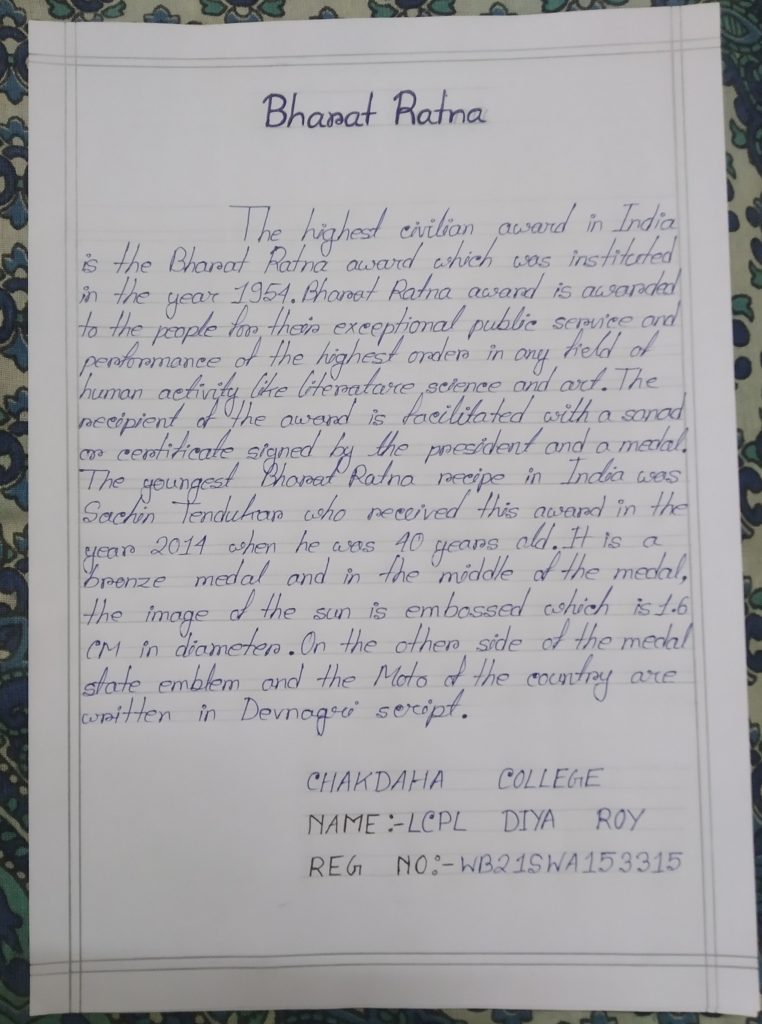 Bharat Ratna
The highest civilian award in India
is the Bharat Ratna award which was instituted
in the year 1954. Bharat Ratna award is awarded
to the people for their exceptional public service and
performance of the highest order in any field of
human activity like literature, science and art. The
recipient of the award is facilitated with a sanad
or certificate signed by the president and a medal.
The youngest Bharat Ratna recipe in India was
Sachin Tendukar who received this award in the
year 2014 when he was 40 years old. It is a
bronze medal and in the middle of the medal,
the image of the sun is embossed which is 1.6
CM in diameter. On the other side of the medal
state emblem and the Moto of the country are
written in Devnagri script.
CHAKDAHA COLLEGE
NAME :- LCPL DIYA ROY
REG NO:- WB21SWA153315